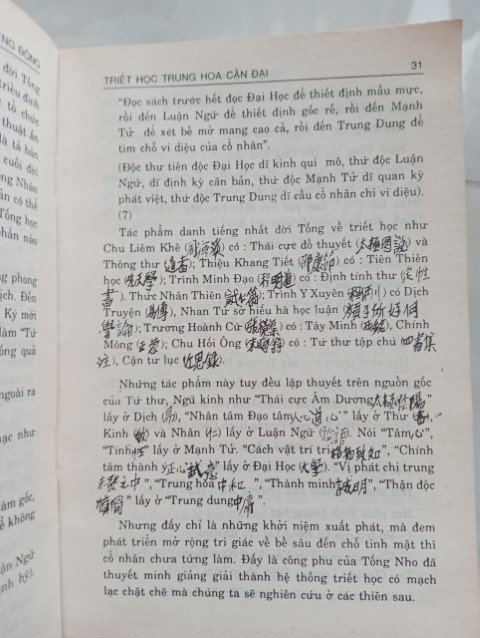 NG ĐÔNG
đời Tống
triều đình
tổ chức
thuật ấn
là tả bản
cuối đời
g Nhân
ản có thể
Tống học
phần nào
g phong
ịch. Đến
Kỳ mới
làm "Tứ
ống quả
ngoài ra
ạc như
tâm gốc,
ể không
Ngữ
nh hỷ).
TRIẾT HỌC TRUNG HOA CẬN ĐẠI 31
"Đọc sách trước hết đọc Đại Học để thiết định mẫu mực,
rồi đến Luận Ngữ để thiết định gốc rễ, rồi đến Mạnh
Tử để xét bề mở mang cao cả, rồi đến Trung Dung để
tìm chỗ vi diệu của cổ nhân".
(Độc thư tiên độc Đại Học dĩ kinh qui mô, thứ độc Luận
Ngữ, dĩ định kỳ căn bản, thứ độc Mạnh Tử dĩ quan kỳ
phát việt, thứ độc Trung Dung dĩ cầu cổ nhân chi vi diệu).
(7)
Tác phẩm danh tiếng nhất đời Tống về triết học như
Chu Liêm Khê (周濂溪) có : Thái cực đồ thuyết (太極圖説) và
Thông thư (通書); Thiệu Khang Tiết (邵康節) có : Tiên Thiên
học (先天學); Trình Minh Đạo (程明道) có : Định tính thư (定性
書), Thức Nhân Thiên (識仁篇); Trình Y Xuyên (程伊川) có Dịch
Truyện (易傳), Nhan Tử sở hiếu hà học luận (顏子所好何
學論); Trương Hoành Cừ (張橫渠) có : Tây Minh (西銘), Chính
Mông (正蒙); Chu Hối Ông (朱晦翁) có : Tứ thư tập chú (四書集
注), Cận tư lục (近思錄).
Những tác phẩm này tuy đều lập thuyết trên nguồn gốc
của Tứ thư, Ngũ kinh như "Thái cực Âm Dương 太極陰陽
" lấy ở Dịch (易), "Nhân tâm Đạo tâm 人心道心" lấy ở Thư (書),
Kinh (敬) và Nhân (仁) lấy ở Luận Ngữ (論語). Nói "Tâm 心",
"Tính 性" lấy ở Mạnh Tử. "Cách vật trí tri 格物致知", "Chính
tâm thành ý 正心誠意" lấy ở Đại Học (大學). "Vị phát chi trung
未發之中", "Trung hòa 中和 ", "Thành minh 誠明", "Thận độc
慎獨" lấy ở "Trung dung 中庸 ".
Nhưng đấy chỉ là những khởi niệm xuất phát, mà đem
phát triển mở rộng tri giác về bề sâu đến chỗ tinh mật thì
cổ nhân chưa từng làm. Đấy là công phu của Tống Nho đã
thuyết minh giảng giải thành hệ thống triết học có mạch
lạc chặt chẽ mà chúng ta sẽ nghiên cứu ở các thiên sau.